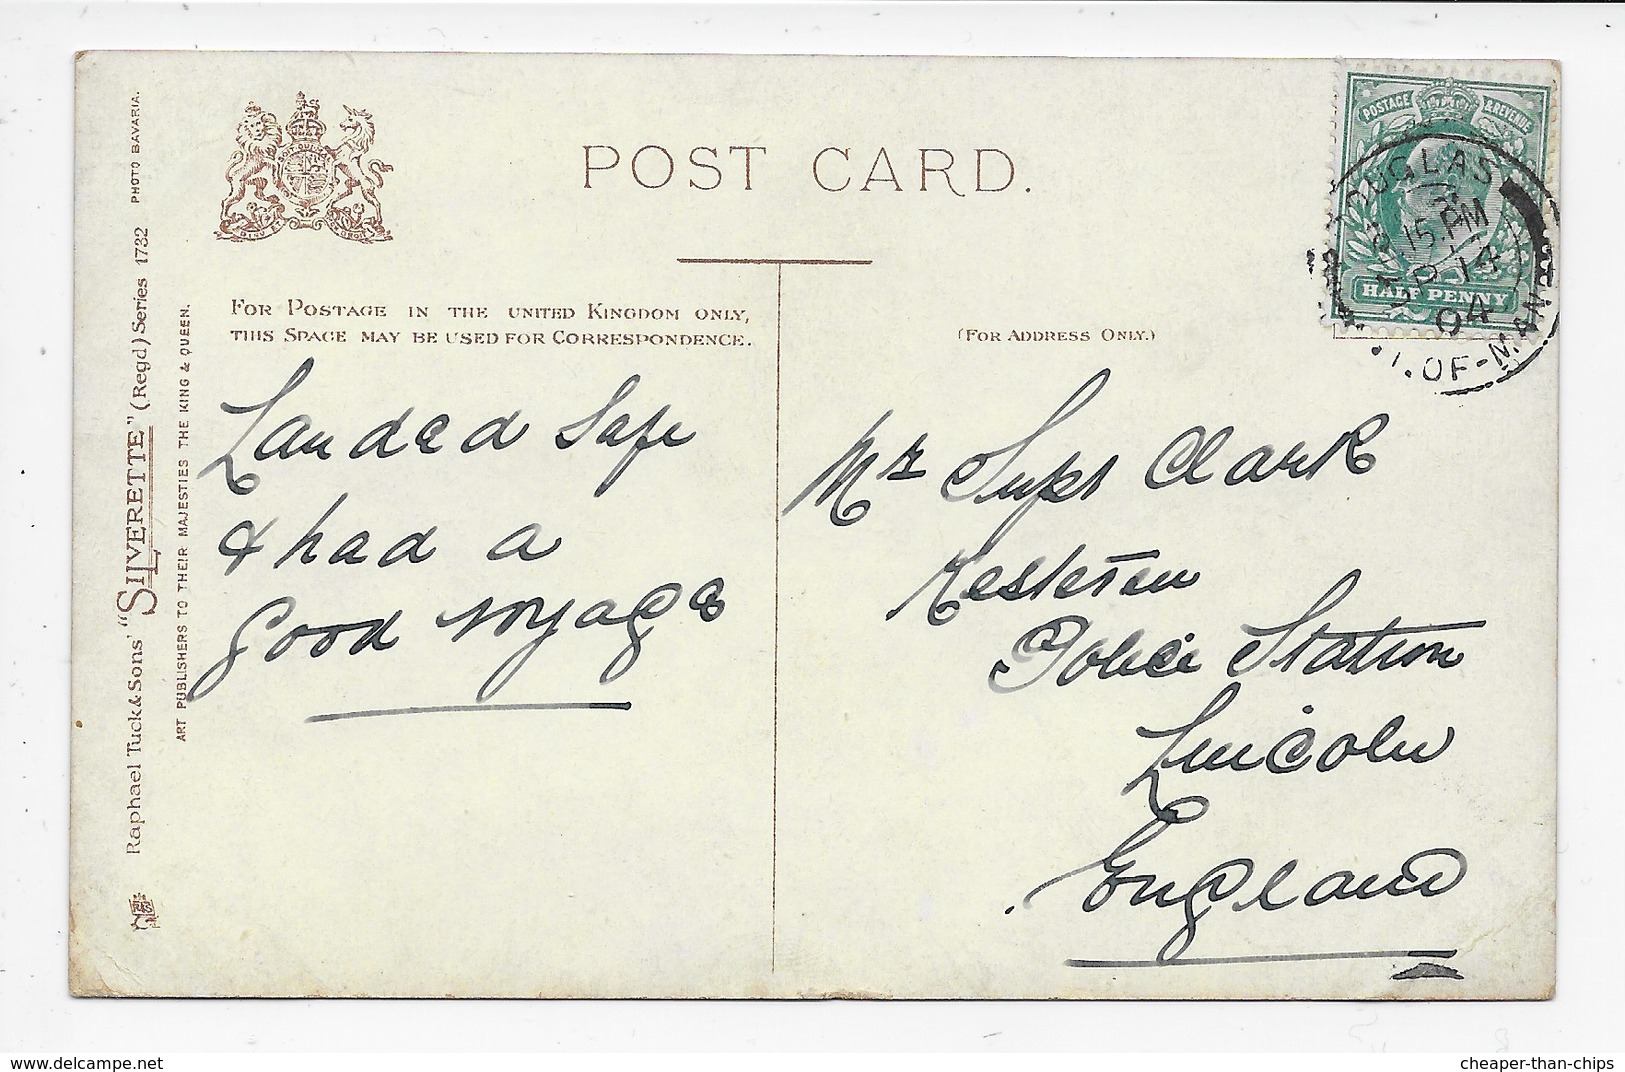 POST CARD.
FOR POSTAGE IN THE UNITED KINGDOM ONLY,
THIS SPACE MAY BE USED FOR CORRESPONDENCE.
(FOR ADDRESS ONLY.)
Landed Safe
& had a
Good voyage
Mr Supt Clark
Kesteven
Police Station
Lincoln
England
Raphael Tuck & Sons' "SILVERETTE" (Regd) Series 1732 PHOTO BAVARIA.
ART PUBLISHERS TO THEIR MAJESTIES THE KING & QUEEN.
POSTAGE & REVENUE
HALF PENNY
DOUGLAS
15 PM
SP 14
04
I. OF-MAN
the-west on delcampe.net
cheaper-than-chips